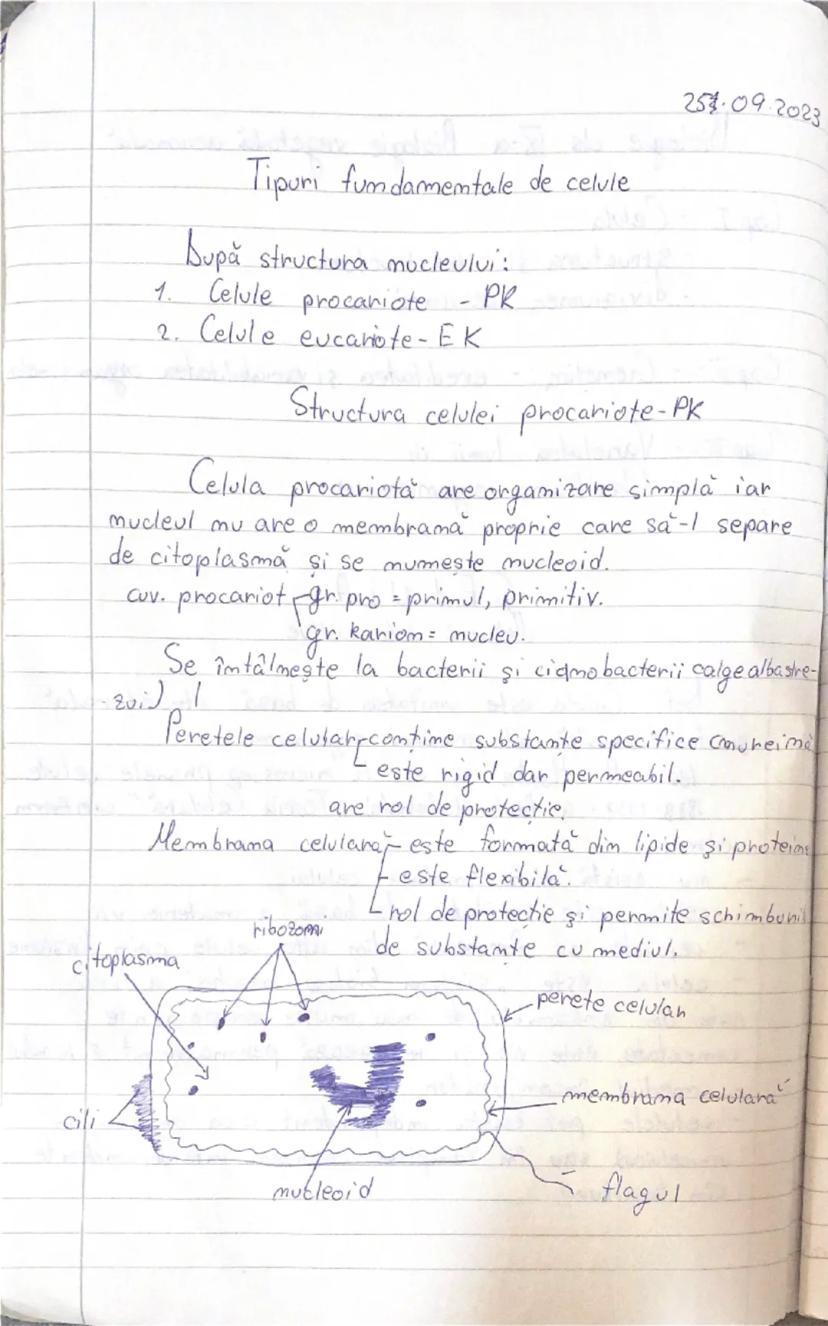 25.09.2023
Tipuri fundamentale de celule
După structura nucleului:
1. Celule procariote - PK
2. Celule eucariote - EK
Structura celulei procariote - PK
Celula procariotă are organizare simplă iar
nucleul nu are o membrană proprie care să-l separe
de citoplasmă și se numește nucleoid.
cuv. procariot gr. pro = primul, primitiv.
gr. karion = nucleu.
Se întâlnește la bacterii și cianobacterii (alge albastre-
Peretele celular conține substanțe specifice (mureină
este rigid dar permeabil.
are rol de protecție.
Membrana celulară este formată din lipide și proteine
este flexibilă.
rol de protecție și permite schimburi
de substanțe cu mediul.
ribozomi
citoplasma
perete celular
membrana celulară
cili
nucleoid
flagul